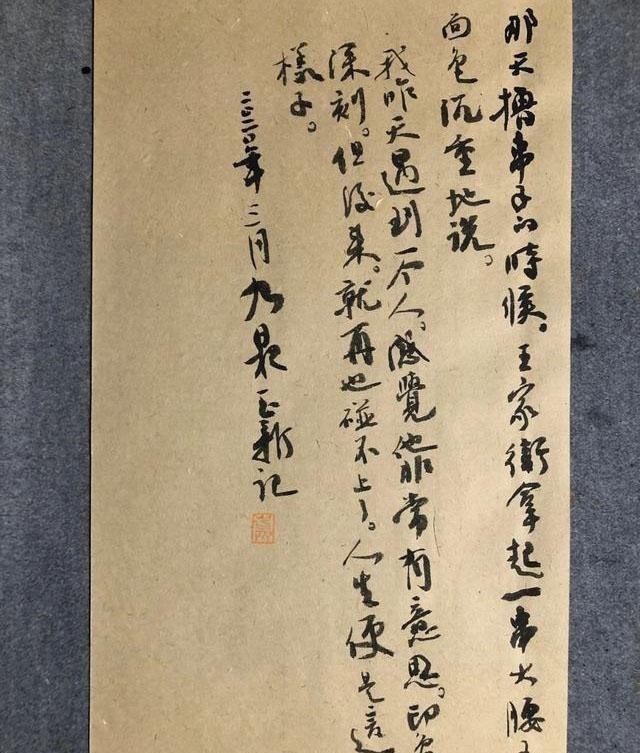 那天撸串子的時候。王家衛拿起一串大腰子
面色沉重地说。
我昨天遇到一个人。感覺他非常有意思。印象
深刻。但後来。就再也碰不上了。人生便是這
樣子。
二〇二〇年三月 正新记